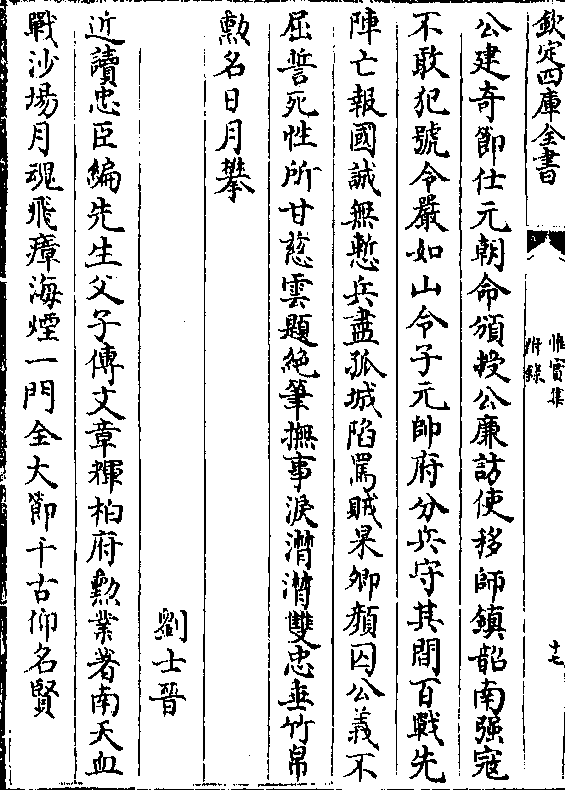 欽定四庫全書
惟實集
附錄
十七
公建奇節仕元朝命頒授公廉訪使移師鎮韶南强寇
不敢犯號令嚴如山令子元帥府分兵守其間百戰先
陣亡報國誠無慙兵盡孤城陷罵賊杲卿顔囚公義不
屈誓死性所甘慈雲題絶筆撫事淚潸潸雙忠垂竹帛
勲名日月攀
劉士晉
近讀忠臣編先生父子傳文章輝柏府勲業著南天血
戰沙場月魂飛瘴海煙一門全大節千古仰名賢